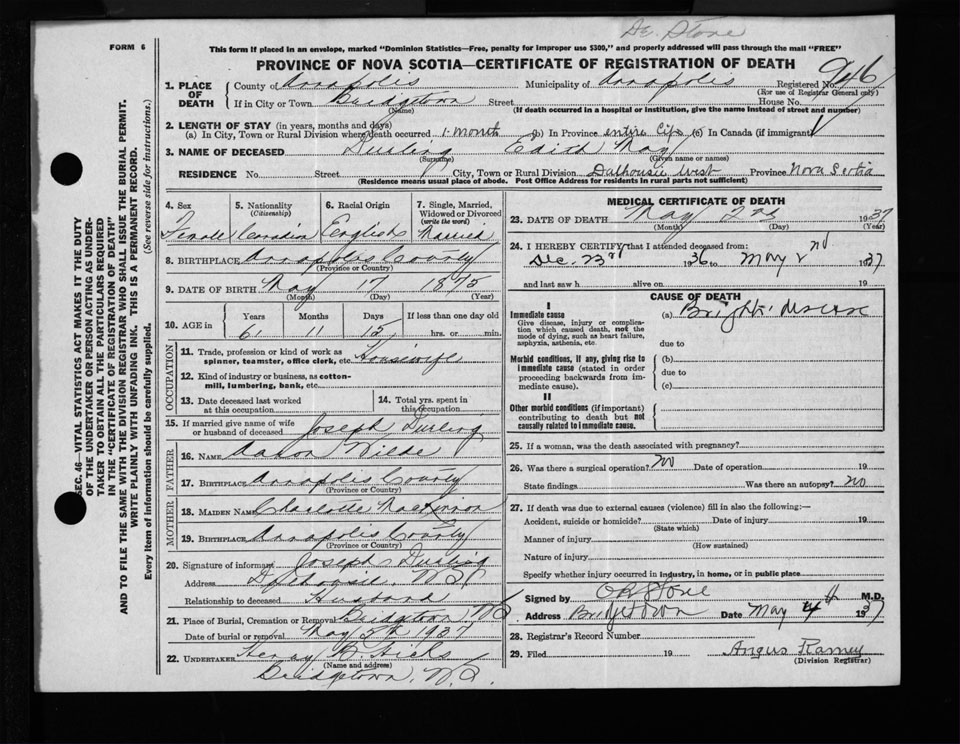 Dr. Stone
FORM 6
This form if placed in an envelope, marked "Dominion Statistics—Free, penalty for improper use $300," and properly addressed will pass through the mail "FREE"
PROVINCE OF NOVA SCOTIA—CERTIFICATE OF REGISTRATION OF DEATH
1. PLACE OF DEATH
County of Annapolis Municipality of Annapolis Registered No. 946
(For use of Registrar General only)
If in City or Town Bridgetown Street House No.
(Name) (If death occurred in a hospital or institution, give the name instead of street and number)
2. LENGTH OF STAY (in years, months and days)
(a) In City, Town or Rural Division where death occurred 1-month (b) In Province entire life (c) In Canada (if immigrant)
3. NAME OF DECEASED Durling Edith May
(Surname) (Given name or names)
RESIDENCE No. Street City, Town or Rural Division Dalhousie West Province Nova Scotia
(Residence means usual place of abode. Post Office Address for residents in rural parts not sufficient)
4. Sex Female
5. Nationality (Citizenship) Canadian
6. Racial Origin English
7. Single, Married, Widowed or Divorced (write the word) Married
8. BIRTHPLACE Annapolis County
(Province or Country)
9. DATE OF BIRTH May 17 1875
(Month) (Day) (Year)
10. AGE in Years Months Days If less than one day
61 11 15 hrs. or min.
OCCUPATION
11. Trade, profession or kind of work as spinner, teamster, office clerk, etc. Housewife
12. Kind of industry or business, as cotton-mill, lumbering, bank, etc.
13. Date deceased last worked at this occupation
14. Total yrs. spent in this occupation
15. If married give name of wife or husband of deceased Joseph Durling
FATHER
16. NAME Aaron
17. BIRTHPLACE Annapolis County
(Province or Country)
MOTHER
18. MAIDEN NAME Charlotte MacKinnon
19. BIRTHPLACE Annapolis County
(Province or Country)
20. Signature of informant Joseph Durling
Address Dalhousie, N.S.
Relationship to deceased Husband
21. Place of Burial, Cremation or Removal Bridgetown, N.S.
Date of burial or removal May 5th 1937
22. UNDERTAKER Henry B. Hicks
(Name and address)
Bridgetown, N.S.
MEDICAL CERTIFICATE OF DEATH
23. DATE OF DEATH May 2nd 1937
(Month) (Day) (Year)
24. I HEREBY CERTIFY that I attended deceased from:
Dec. 23rd 1936 to May 2nd 1937
and last saw h alive on 19
CAUSE OF DEATH
I
Immediate cause
Give disease, injury or complication which caused death, not the mode of dying, such as heart failure, asphyxia, asthenia, etc.
(a) Bright's disease
due to
Morbid conditions, if any, giving rise to immediate cause (stated in order proceeding backwards from immediate cause).
(b)
due to
(c)
II
Other morbid conditions (if important) contributing to death but not causally related to immediate cause.
25. If a woman, was the death associated with pregnancy?
26. Was there a surgical operation? No Date of operation 19
State findings Was there an autopsy? no
27. If death was due to external causes (violence) fill in also the following:—
Accident, suicide or homicide? Date of injury 19
(State which)
Manner of injury
(How sustained)
Nature of injury
Specify whether injury occurred in industry, in home, or in public place
Signed by Stone M.D.
Address Bridgetown Date May 4 1937
28. Registrar's Record Number
29. Filed 19 Angus Ramey
(Division Registrar)
SEC. 46—VITAL STATISTICS ACT MAKES IT THE DUTY
OF THE UNDERTAKER OR PERSON ACTING AS UNDER-
TAKER TO OBTAIN ALL THE PARTICULARS REQUIRED
IN THE "CERTIFICATE OF REGISTRATION OF DEATH"
AND TO FILE THE SAME WITH THE DIVISION REGISTRAR WHO SHALL ISSUE THE BURIAL PERMIT.
WRITE PLAINLY WITH UNFADING INK. THIS IS A PERMANENT RECORD.
Every item of information should be carefully supplied. (See reverse side for instructions.)